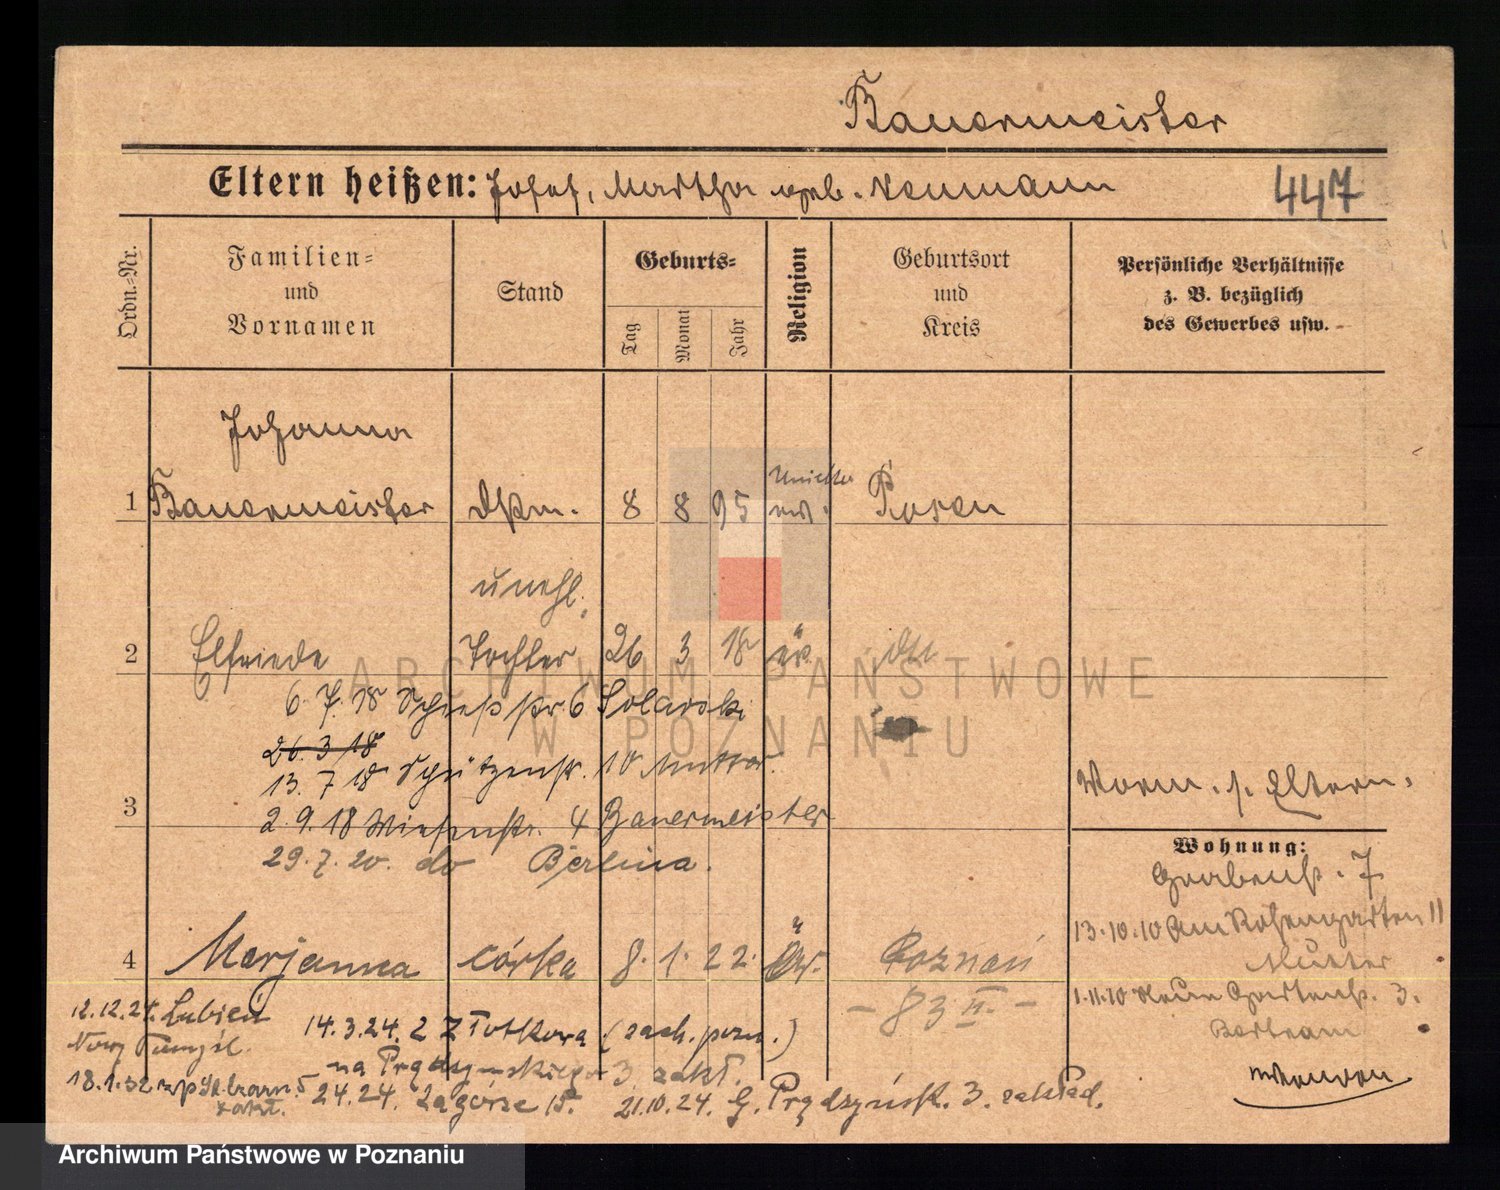 Bauermeister
Eltern heißen: Josef, Martha geb. Neumann
447
Ordn.-Nr.
Familien- und Vornamen
Stand
Geburts-
Tag
Monat
Jahr
Religion
Geburtsort und Kreis
Persönliche Verhältnisse z. B. bezüglich des Gewerbes usw.
Johanna
1 Bauermeister 8 8 95 Posen
unehl.
2 Elfriede Tochter 26 3 18 ev. dto
6. 7. 18 Schießstr 6 Solarski
26. 3 18
13. 7 18 Schützenstr. 10 Mutter
3 2. 9. 18 Wiesenstr. 4 Bauermeister
29. 7. 20. do Berlina.
Vorm. s. Eltern.
Wohnung:
Grabenstr. 7
13.10.10 Am Rosengarten 11
Mutter
1.11.10 Neue Gartenstr. 3.
Bertram
4 Marjanna córka 8. 1. 22. Ew. Poznań
– 83 II. –
12.12.24. Lubień
Nowy Tomyśl.
14.3.24. z Złotkowa (zach. pozn.)
na Prądzyńskiego 3 zakł.
18.1.32
zakł.
24.24. Zagórze 15.
21.10.24. G. Prądzyńsk. 3. zakład.
ARCHIWUM PAŃSTWOWE
W POZNANIU
Archiwum Państwowe w Poznaniu